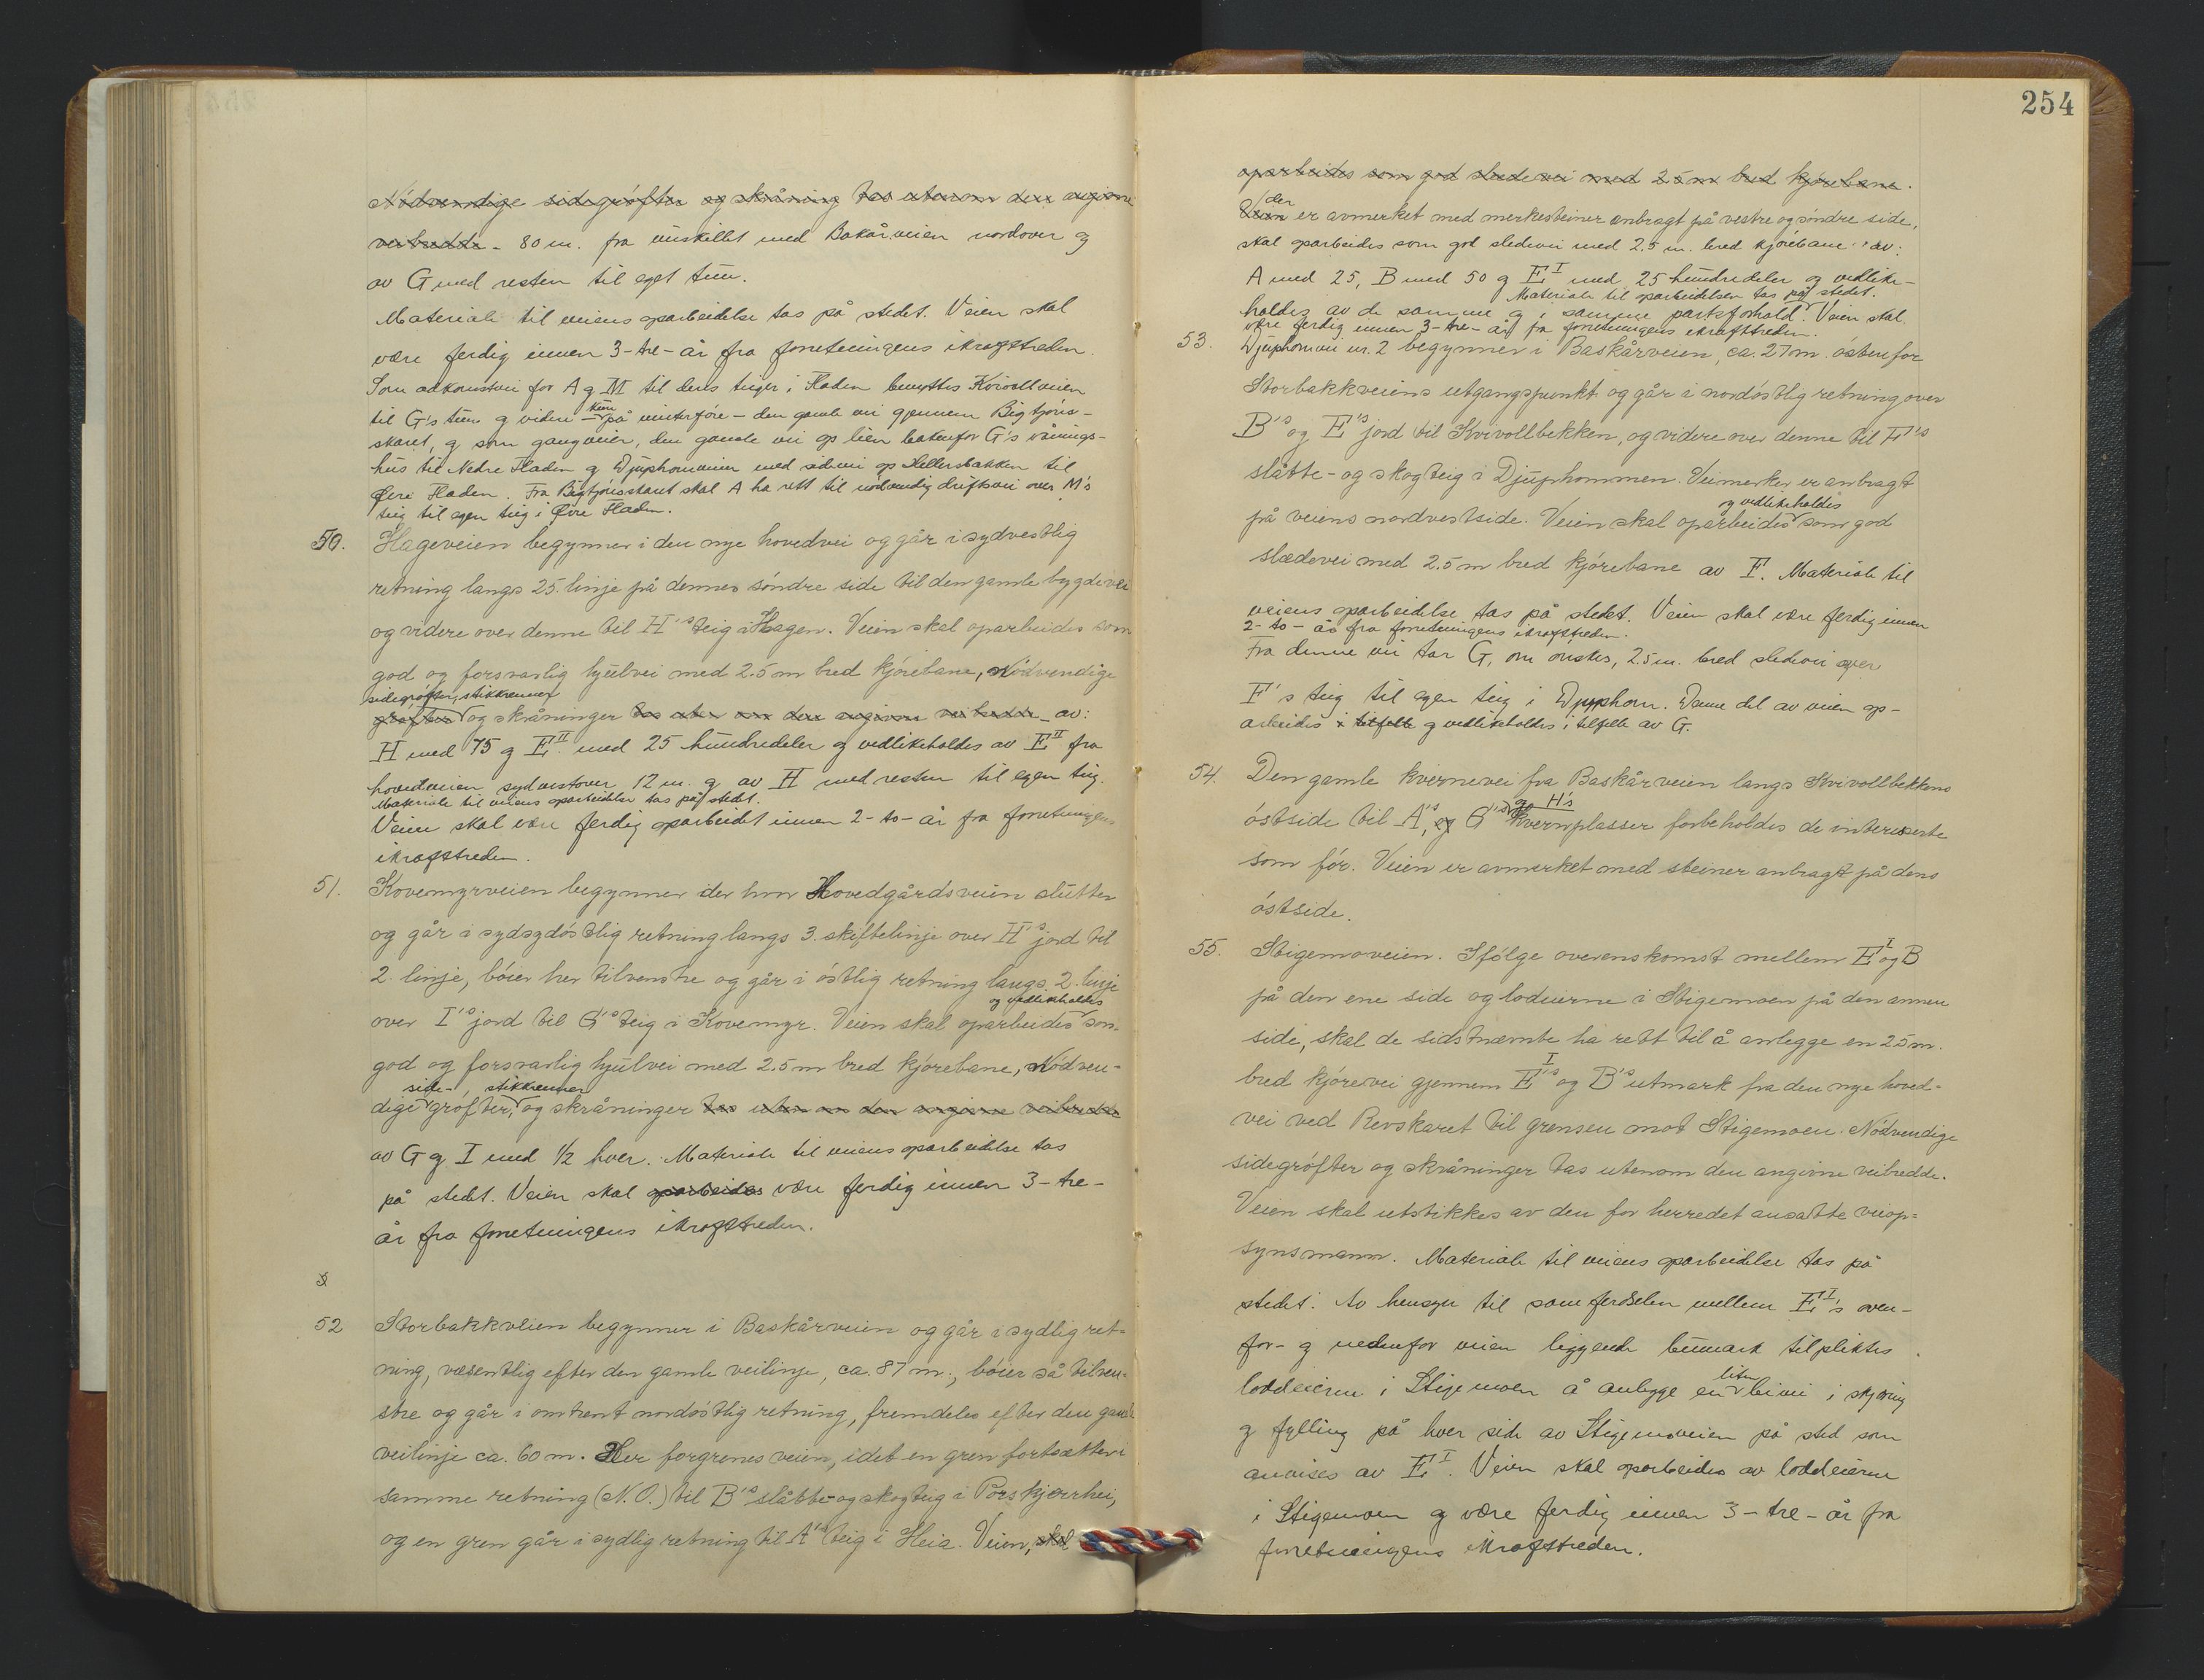 Nödvendige sidegröfter og skråning tas utenom den angivne
veibredde - 80 m. fra veiskillet med Bakårveien nordover og
av G med resten til eget tun.
Materiale til veiens oparbeidelse tas på stedet. Veien skal
være ferdig innen 3-tre-år fra forretningens ikrafttreden.
Som adkomstvei for A og M til deres teiger i Fladen benyttes Kvivollveien
til G's tun og videre - kun på vinterføre - den gamle vei gjennem Bigtjöns-
skaret, og som gangveier, den gamle vei op lien bakenfor G's vånings-
hus til Nedre Fladen og Djuphomveien med sidevei op Hellersbakken til
Øvre Fladen. Fra Bigtjönsskaret skal A ha rett til nödvendig driftsvei over M's
teig til egen teig i Øvre Fladen.
50. Hageveien begynner i den nye hovedvei og går i sydvestlig
retning langs 25. linje på dennes söndre side til den gamle bygdevei
og videre over denne til H's teig i Hagen. Veien skal oparbeides som
god og forsvarlig hjulvei med 2.5 m bred kjörebane, Nödvendige
sidegröfter, stikkrenner
gröfter og skråninger tas uten om den angivne veibredde - av:
H med 75 og E II med 25 hundredeler og vedlikeholdes av E II fra
hovedveien sydvestover 12 m. og av H med resten til egen teig.
Materiale til veiens oparbeidelse tas på stedet.
Veien skal være ferdig oparbeidet innen 2-to-år fra forretningens
ikrafttreden.
51. Kovemyrveien begynner der hvor Hovedgårdsveien slutter
og går i sydsydöstlig retning langs 3. skiftelinje over H's jord til
2. linje, böier her tilvenstre og går i östlig retning langs 2. linje
og vedlikeholdes
over I's jord til G's teig i Kovemyr. Veien skal oparbeides som
god og forsvarlig hjulvei med 2.5 m bred kjörebane, Nödven-
side-, stikkrenner
dige gröfter, og skråninger tas uten om den angivne veibredde
av G og I med 1/2 hver. Materiale til veiens oparbeidelse tas
på stedet. Veien skal oparbeides være ferdig innen 3-tre-
år fra forretningens ikrafttreden.
52 Storbakkveien begynner i Baskårveien og går i sydlig ret-
ning, væsentlig efter den gamle veilinje, ca. 87 m., böier så tilven-
stre og går i omtrent nordöstlig retning, fremdeles efter den gamle
veilinje ca. 60 m. Her forgrenes veien, idet en gren fortsætter i
samme retning (N.O.) til B's slåtte- og skogteig i Porskjerrhei,
og en gren går i sydlig retning til A's teig i Heia. Veien, skal
254
oparbeides som god sledevei med 2.5 m bred kjörebane.
der
Veien er avmerket med merkesteiner anbragt på vestre og söndre side,
skal oparbeides som god sledevei med 2.5 m. bred kjörebane av:
A med 25, B med 50 og E I med 25 hundredeler og vedlike-
Materiale til oparbeidelsen tas på stedet.
holdes av de samme og i samme partsforhold. Veien skal
være ferdig innen 3-tre-år fra forretningens ikrafttreden.
53. Djuphomvei nr. 2 begynner i Baskårveien, ca. 27 m. östenfor
Storbakkveiens utgangspunkt og går i nordöstlig retning over
B's og E's jord til Kvivollbekken, og videre over denne til F's
slåtte- og skogteig i Djuphommen. Veimerker er anbragt
og vedlikeholdes
på veiens nordvestside. Veien skal oparbeides som god
slædevei med 2.5 m bred kjörebane av F. Materiale til
veiens oparbeidelse tas på stedet. Veien skal være ferdig innen
2-to-år fra forretningens ikrafttreden.
Fra denne vei tar G, om önskes, 2.5 m. bred sledevei over
F's teig til egen teig i Djuphom. Denne del av veien op-
arbeides i tilfelle og vedlikeholdes i tilfelle av G.
54. Den gamle kvernevei fra Baskårveien langs Kvivollbekkens
og H's
östside til A's, og G's kvernplasser forbeholdes de interesserte
som för. Veien er avmerket med steiner anbragt på dens
östside.
55. Stigemoveien. Ifölge overenskomst mellem E I og B
på den ene side og lodeierne i Stigemoen på den annen
side, skal de sidstnævnte ha rett til å anlegge en 2.5 m.
bred kjörevei gjennem E I's og B's utmark fra den nye hoved-
vei ved Revskaret til grensen mot Stigemoen. Nödvendige
sidegröfter og skråninger tas utenom den angivne veibredde.
Veien skal utstikkes av den for herredet ansatte veiop-
synsmann. Materiale til veiens oparbeidelse tas på
stedet. Av hensyn til samferdselen mellem E I's oven-
for- og nedenfor veien liggende beimark tilpliktes
liten
loddeierne i Stigemoen å anlegge en beivei i skjæring
og fylling på hver side av Stigemoveien på sted som
anvises av E I. Veien skal oparbeides av loddeierne
i Stigemoen og være ferdig innen 3-tre-år fra
forretningens ikrafttreden.